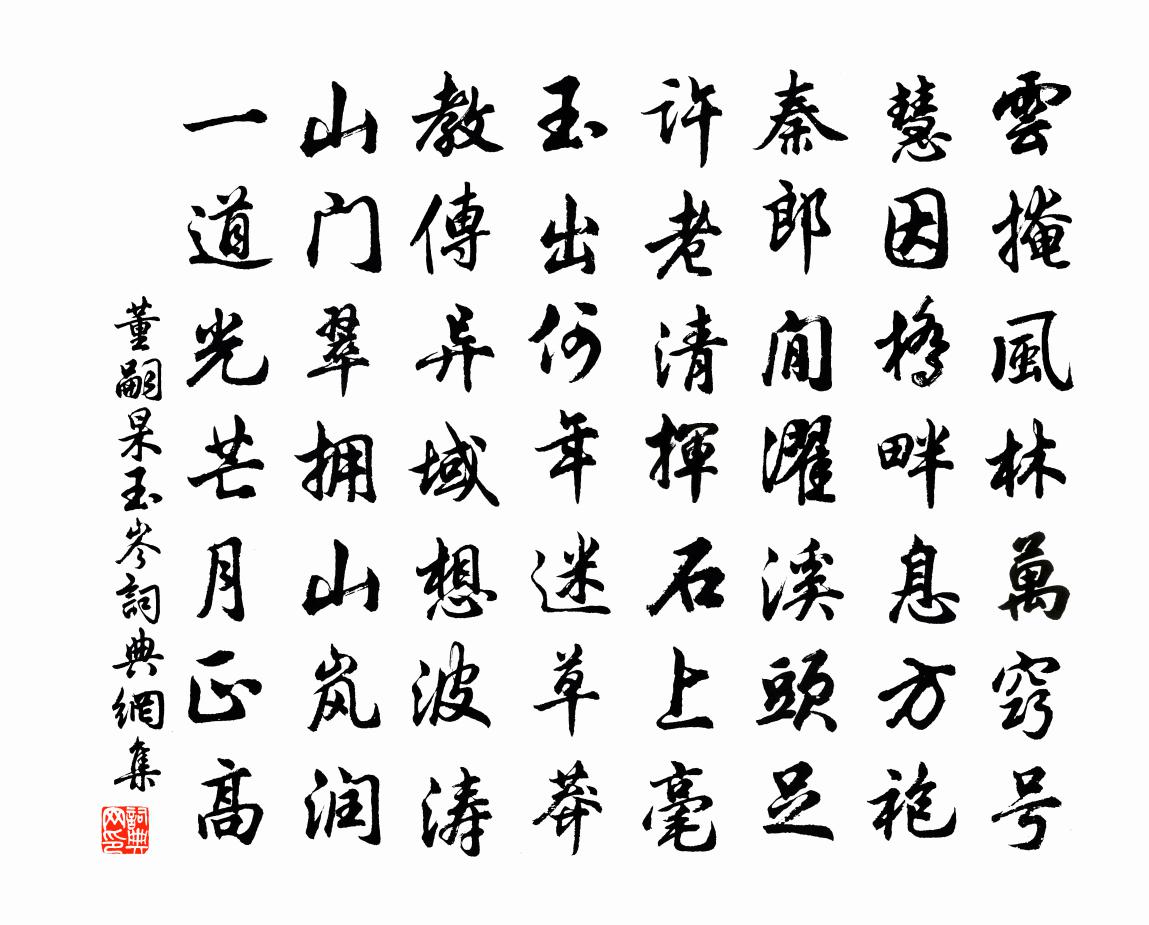 雲掩風林萬竅号
慧因橋畔息方袍
秦郎閒濯溪頭足
许老清揮石上毫
玉出何年迷草莽
教傳异域想波涛
山门翠拥山岚润
一道光芒月正高
董嗣杲玉岑詞典網集
詞典網印